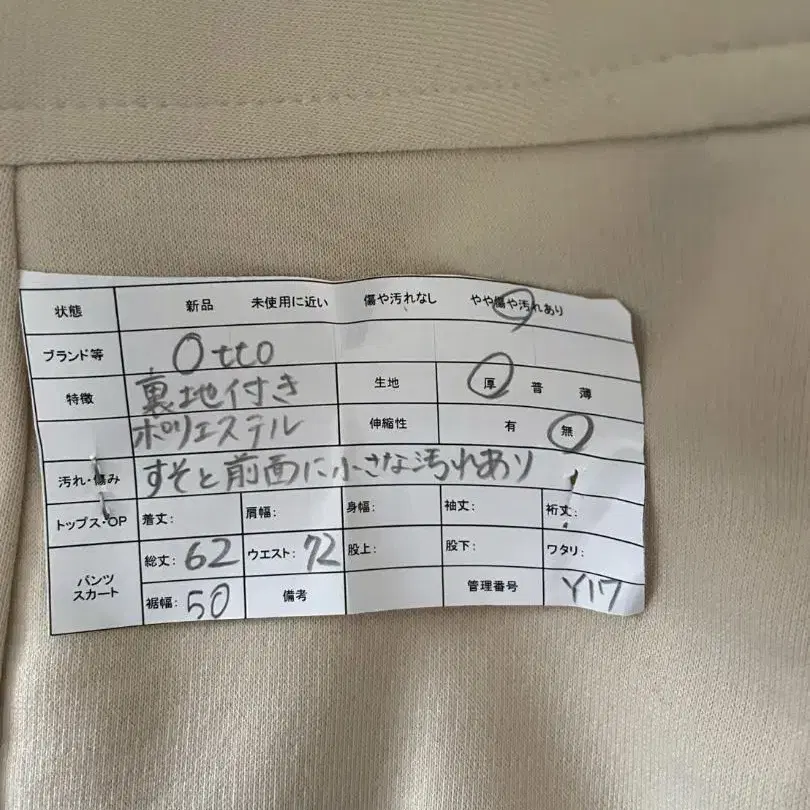 状態 新品 未使用に近い 傷や汚れなし やや傷や汚れあり
ブランド等 Otto
特徴 裏地付き 生地 厚 普 薄
ポリエステル 伸縮性 有 無
汚れ・傷み すそと前面に小さな汚れあり
トップス・OP 着丈: 肩幅: 身幅: 袖丈: 裄丈:
パンツ スカート 総丈: 62 ウエスト: 72 股上: 股下: ワタリ:
裾幅: 50 備考 管理番号 Y17